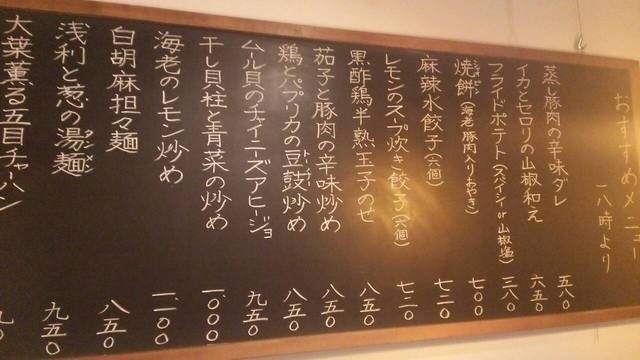 おすすめメニュー
一八時より
蒸し豚肉の辛味ダレ 五八〇
イカとセロリの山椒和え 六五〇
フライドポテト(スパイシー or 山椒塩) 三八〇
焼餅(海老、豚肉入りおやき) 七〇〇
麻辣水餃子(六個) 七二〇
レモンのスープ炊き餃子(六個) 七二〇
黒酢鶏半熟玉子のせ 八五〇
茄子と豚肉の辛味炒め 八五〇
鶏とパプリカの豆鼓炒め トーチ 八五〇
ムル貝のチャイニーズアヒージョ 九五〇
干し貝柱と青菜の炒め 一、〇〇〇
海老のレモン炒め 一、一〇〇
白胡麻担々麺 八五〇
浅利と葱の湯麺 タンメン 九五〇
大葉薫る五目チャーハン